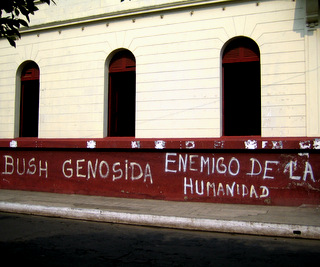 BUSH GENOSIDA ENEMIGO DE LA
HUMANIDAD